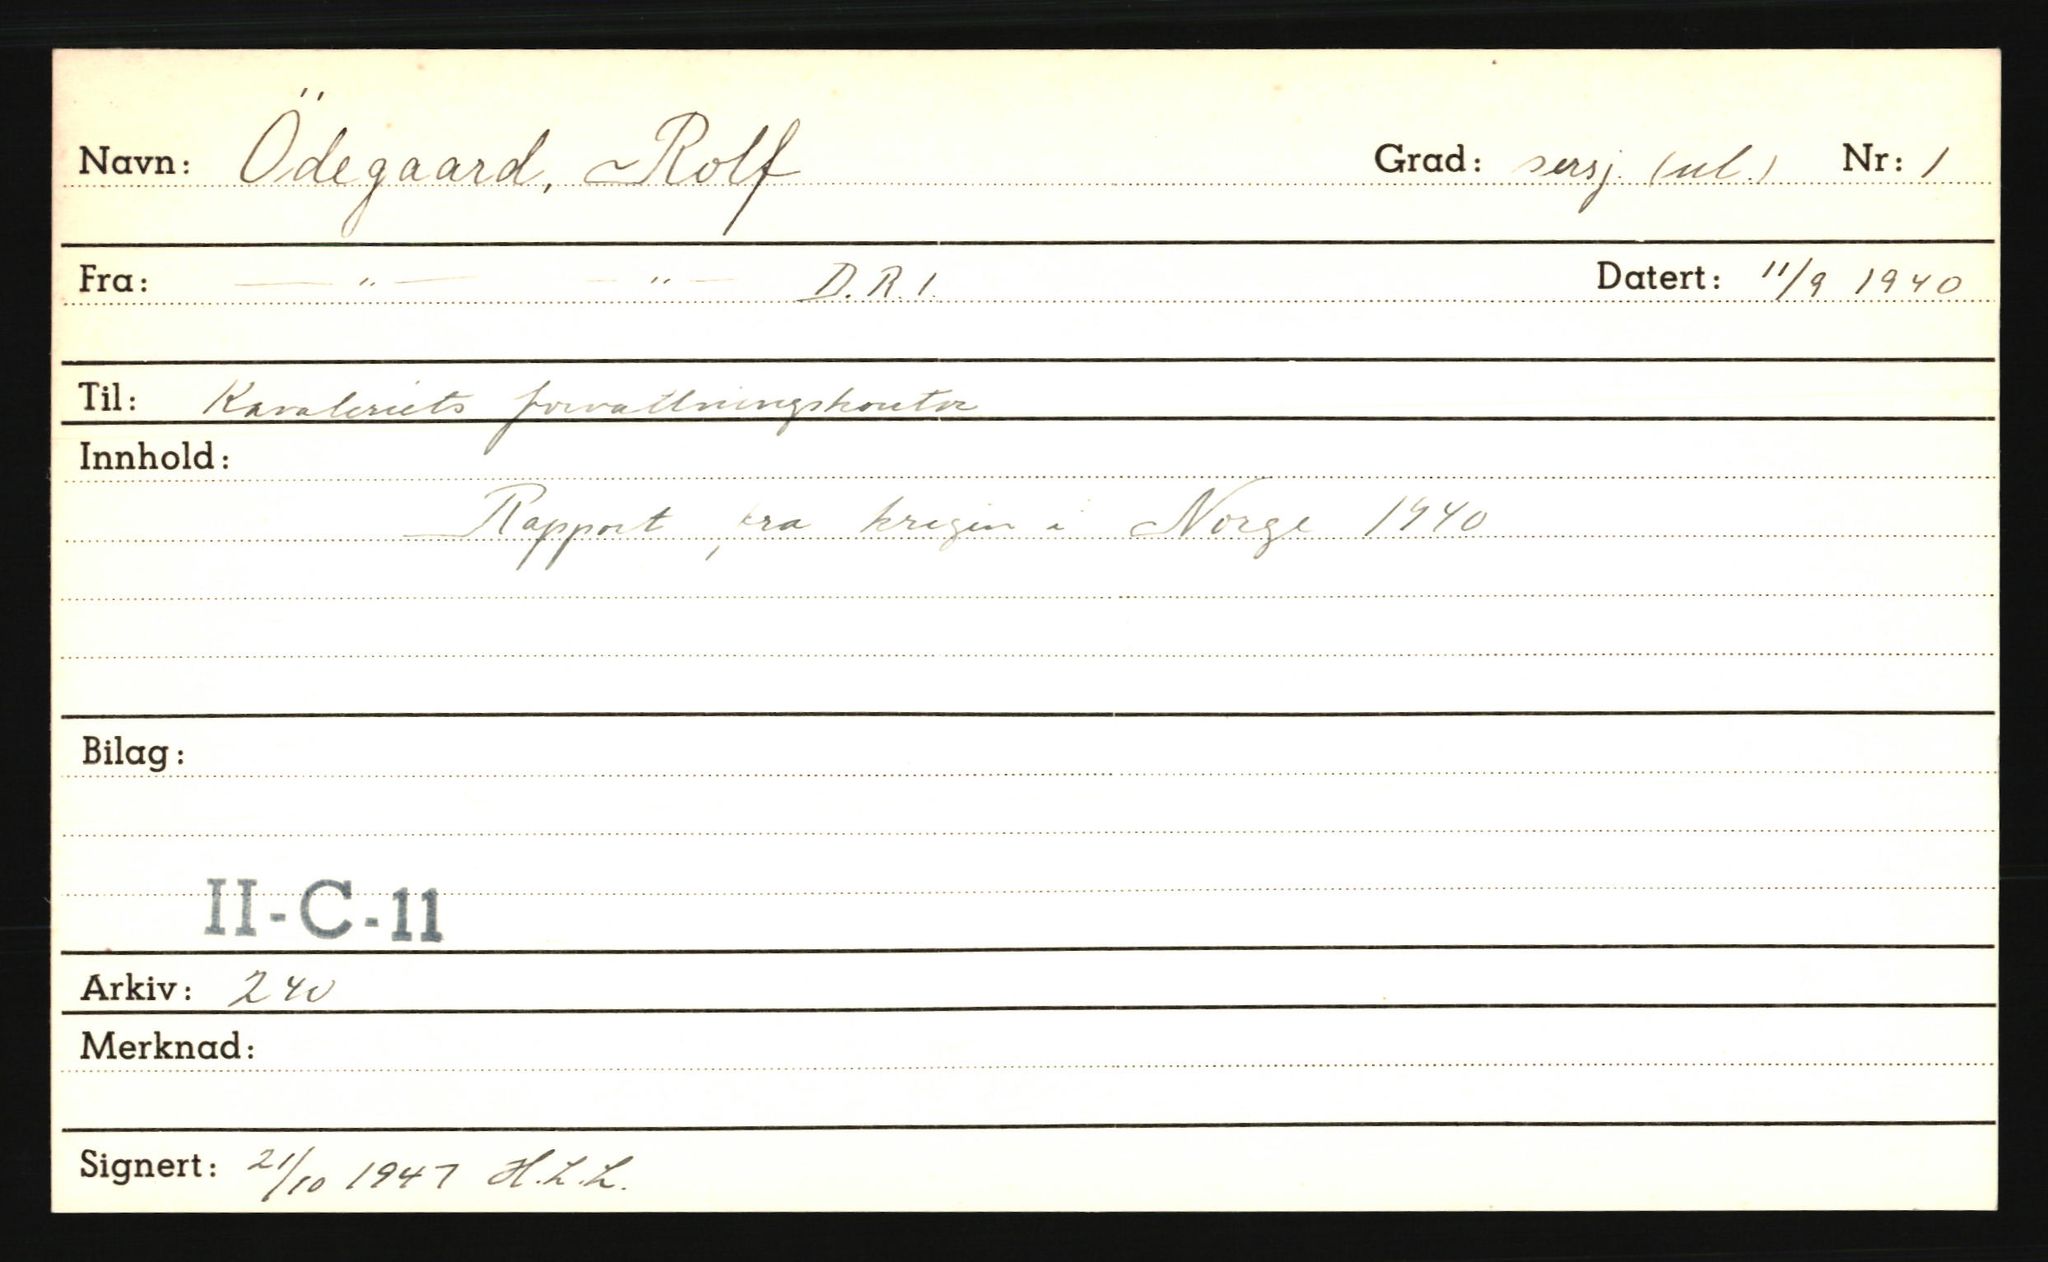 Navn: Ödegaard, Rolf Grad: sersj. (ul.) Nr: 1
Fra: — " — — " — D.R.1. Datert: 11/9 1940
Til: Kavaleriets forvaltningskontor
Innhold:
Rapport fra krigen i Norge 1940
Bilag:
II-C-11
Arkiv: 240
Merknad:
Signert: 21/10 1947 H.L.L.